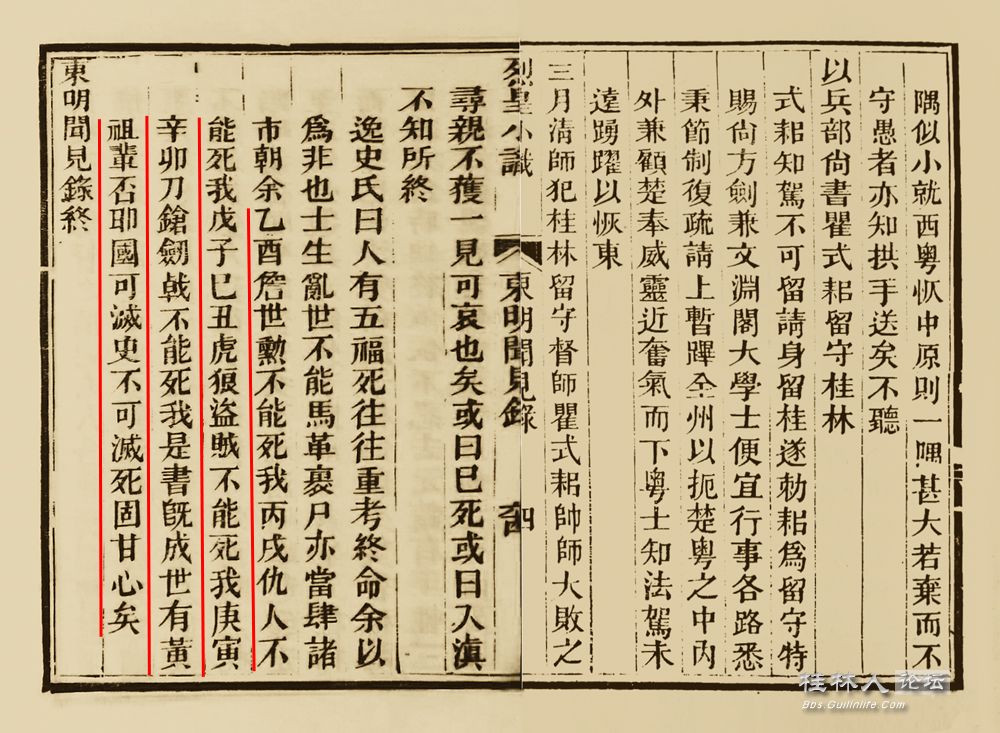 隅似小就西粵恢中原則一隅甚大若棄而不
守愚者亦知拱手送矣不聽
以兵部尚書瞿式耜留守桂林
式耜知駕不可留請身留桂遂勅耜爲留守特
賜尚方劍兼文淵閣大學士便宜行事各路悉
秉節制復疏請上暫蹕全州以扼楚粵之中內
外兼顧楚奉威靈近奮氣而下粵士知法駕未
遠踴躍以恢東
三月清師犯桂林留守督師瞿式耜帥師大敗之
烈皇小識 東明聞見錄 四
尋親不獲一見可哀也矣或曰巳死或曰入滇
不知所終
逸史氏曰人有五福死往往重考終命余以
爲非也士生亂世不能馬革裹尸亦當肆諸
市朝余乙酉詹世勳不能死我丙戌仇人不
能死我戊子巳丑虎狼盜賊不能死我庚寅
辛卯刀鎗劒戟不能死我是書旣成世有黃
祖輩否耶國可滅史不可滅死固甘心矣
東明聞見錄終
桂林人论坛
Bbs.Guilinlife.Com